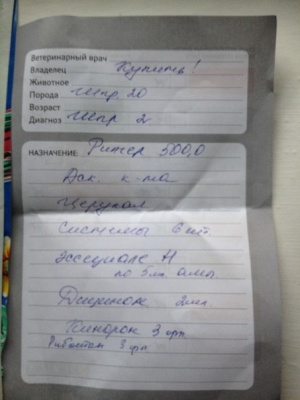 Ветеринарный врач
Владелец Купить!
Животное
Порода Шпр. 20
Возраст
Диагноз Шпр 2
НАЗНАЧЕНИЕ: Рингер 500,0
Аск. к-та
Церукал
Системы 6 шт.
Эссенциале Н
по 5 мл амп.
Дицинон 2мл.
3 фл
3 фл